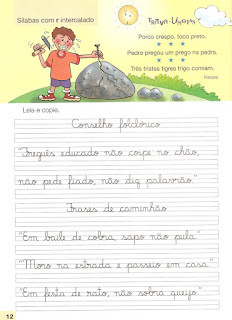 Sílabas com r intercalado
Trava-Línguas
Porco crespo, toco preto.
Pedro pregou um prego na pedra.
Três tristes tigres trigo comiam.
Folclore
Leia e copie.
Conselho folclórico
"Freguês educado não cospe no chão,
não pede fiado, não diz palavrão."
Frases de caminhão
"Em baile de cobra, sapo não pula."
"Moro na estrada e passeio em casa."
"Em festa de rato, não sobra queijo."
12